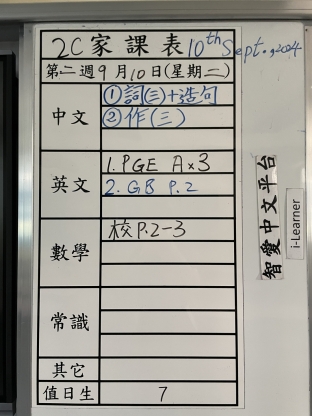 2C家課表 10th Sept. 2024
第二週9月10日(星期二)
中文
①詞(三)+造句
②作(三)
英文
1. PGE A×3
2. GB P.2
數學
校P.2-3
常識
其它
值日生 7
智愛中文平台
i-Learner